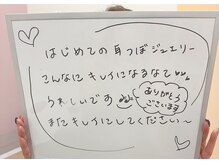 はじめての耳つぼジュエリー
こんなにキレイになるなて
うれしいです
ありがとう
ございます
またキレイにしてくださいー